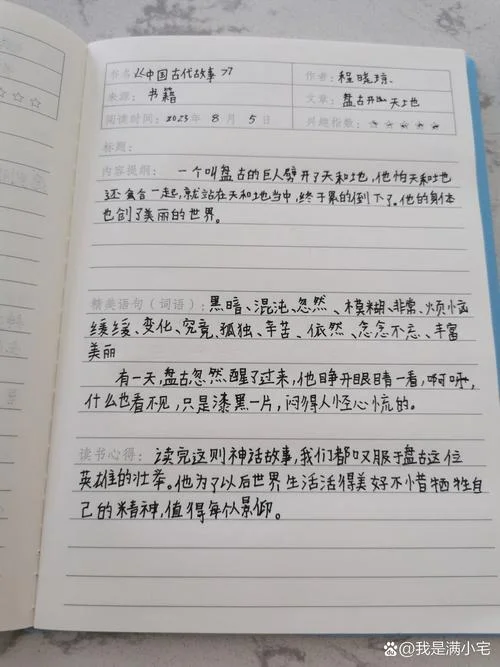 书名 《中国古代故事》 作者: 程晓琼
来源: 书籍 文章: 盘古开天地
阅读时间: 2023 年 8 月 5 日 兴趣指数: ☆ ☆ ☆ ☆ ☆
标题:
内容提纲: 一个叫盘古的巨人劈开了天和地,他怕天和地
还会合一起,就站在天和地当中,终于累的倒下了。他的身体
也创了美丽的世界。
精美语句(词语): 黑暗、混沌、忽然、模糊、非常、烦恼
缓缓、变化、究竟、孤独、辛苦、依然、念念不忘、丰富
美丽
有一天,盘古忽然醒了过来,他睁开眼睛一看,啊呀,
什么也看不见,只是漆黑一片,闷得人怪心慌的。
读书心得: 读完这则神话故事,我们都叹服于盘古这位
英雄的壮举。他为了以后世界生活活得美好不惜牺牲自
己的精神,值得每个人景仰。
@我是满小宅